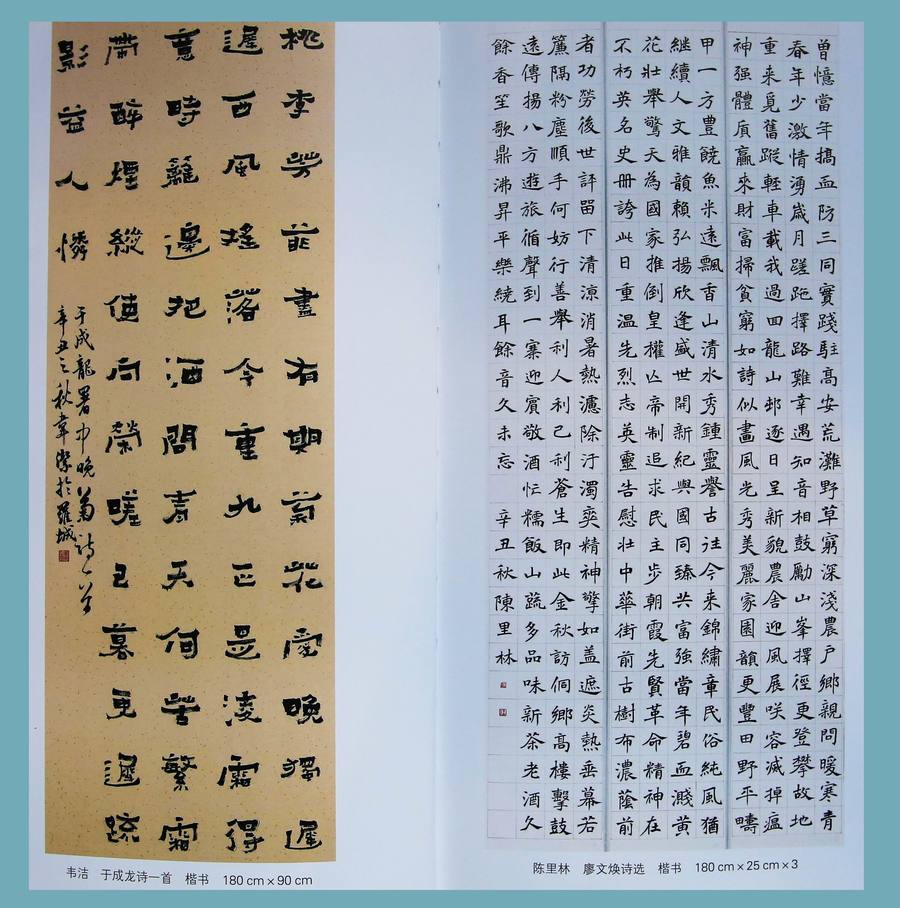 桃李芳菲盡有期菊花愛晚獨遲
遲西風搖落今重九正是凌霜得
意時籬邊把酒問青天何苦繁霜
帶醉煙縱使向榮嗟已暮更遲疏
影益人憐
于成龍署中晚菊詩一首
辛丑之秋韋潔於羅城
韦洁 于成龙诗一首 楷书 180 cm × 90 cm
曾憶當年搞盃防三同實踐駐高安荒灘野草窮深淺農戶鄉親問暖寒青
春年少激情湧歲月蹉跎擇路難幸遇知音相鼓勵山峯擇徑更登攀故地
重来覓舊蹤輕車載我過回龍山邨逐日呈新貌農舍迎風展咲容滅掉瘟
神强體質贏來財富掃貧窮如詩似畫風光秀美麗家園韻更豐田野平疇
甲一方豊饒魚米遠飄香山清水秀鍾靈譽古往今来錦繡章民俗純風猶
継續人文雅韻賴弘揚欣逢盛世開新紀與國同臻共富強當年碧血濺黄
花壯舉驚天為國家推倒皇權亾帝制追求民主步朝霞先賢革命精神在
不朽英名史冊誇此日重温先烈志英靈告慰壯中華街前古樹布濃蔭前
者功勞後世評留下清涼消暑熱濾除汙濁奕精神擎如盖遮炎熱垂幕若
簾隔粉塵順手何妨行善舉利人利己利蒼生即此金秋訪侗鄉高樓擊鼓
遠傳揚八方遊旅循聲到一寨迎賓敬酒忙糯飯山蔬多品味新茶老酒久
餘香笙歌鼎沸昇平樂繞耳餘音久未忘 辛丑秋陳里林
陈里林 廖文焕诗选 楷书 180 cm × 25 cm × 3